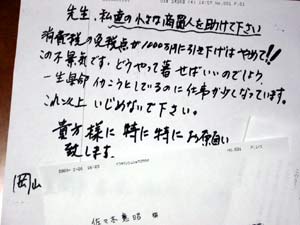 先生、私達の小さな商売人を助けて下さい
消費税の免税点が1000万円に引き下げはやめて!!
この不景気です、どうやって暮せばいいのでしょう、
一生懸命 働こうとしているのに仕事が少くなっています。
これ以上 いじめないで下さい。
貴方様に 特に特に お願い
致します。
岡山
佐々木憲昭 様